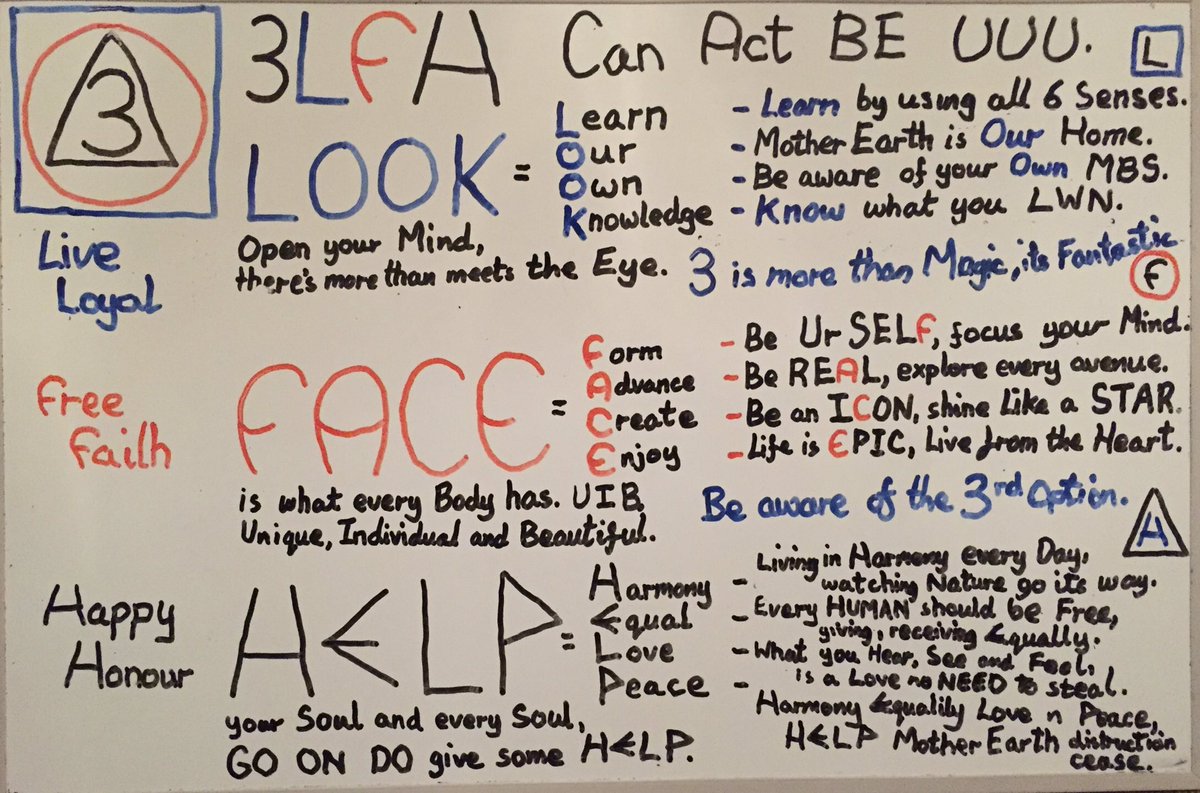 3
3LFA Can Act BE UUU.
L
LOOK = Learn
Our
Own
Knowledge
- Learn by using all 6 Senses.
- Mother Earth is Our Home.
- Be aware of your Own MBS.
- Know what you LWN.
Live
Loyal
Open your Mind,
there's more than meets the Eye.
3 is more than Magic, its Fantastic
F
Free
Faith
FACE = Form
Advance
Create
Enjoy
- Be Ur SELF, focus your Mind.
- Be REAL, explore every avenue.
- Be an ICON, shine Like a STAR.
- Life is EPIC, Live from the Heart.
is what every Body has. UIB.
Unique, Individual and Beautiful.
Be aware of the 3rd Option.
A
Happy
Honour
HELP = Harmony
Equal
Love
Peace
- Living in Harmony every Day,
watching Nature go its way.
- Every HUMAN should be Free,
giving, receiving Equally.
- What you Hear, See and Feel,
is a Love no NEED to steal.
- Harmony Equality Love n Peace,
HELP Mother Earth distruction
cease.
your Soul and every Soul,
GO ON DO give some HELP.